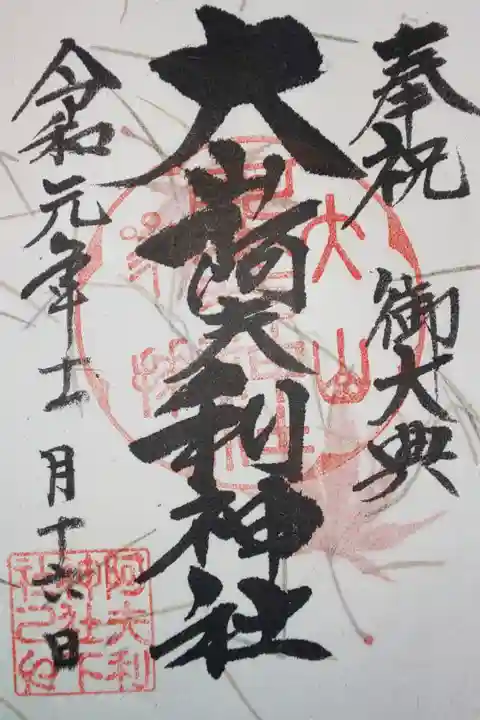 奉祝 御大典
大山阿夫利神社
令和元年十一月十六日
大山
阿夫利
神社下
社